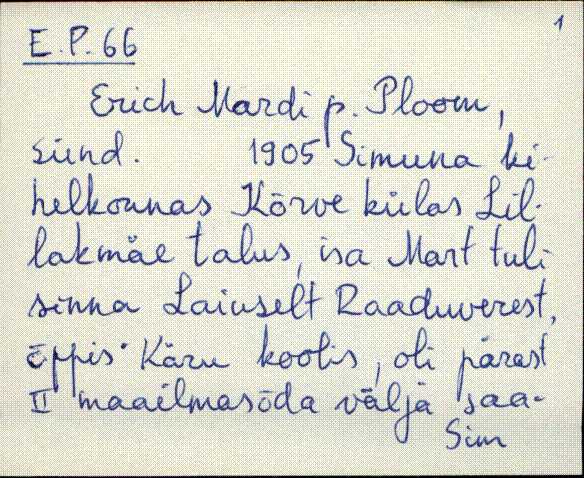 1
E.P. 66
Erich Mardi p. Ploom,
sünd. 1905 Simuna ki-
helkonnas Kõrve külas Lil-
lakmäe talus, isa Mart tuli
sinna Laiuselt Raaduverest,
õppis Käru koolis, oli pärast
II maailmasõda välja saa-
Sim